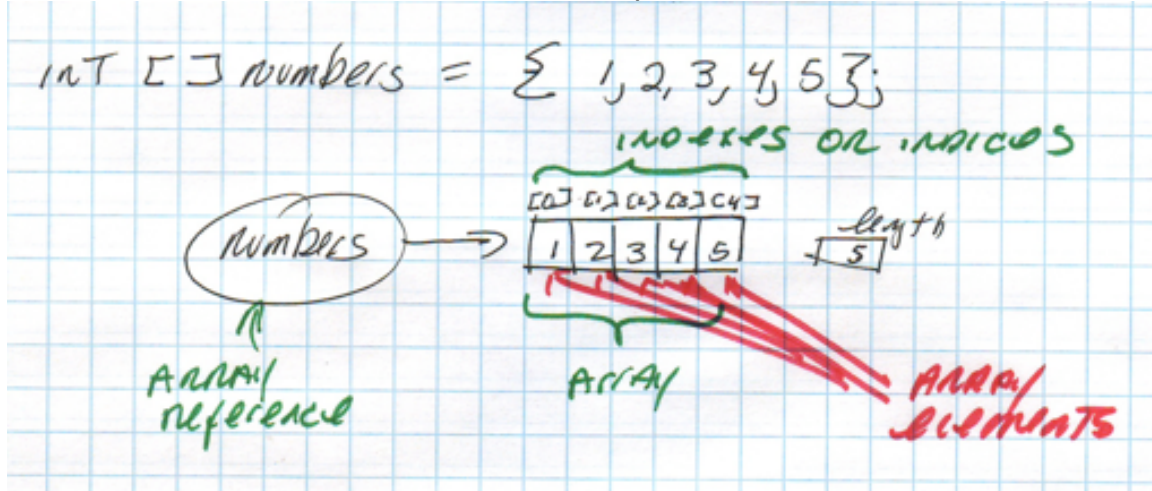 int [] numbers = { 1, 2, 3, 4, 5 };
INDEXES OR INDICES
[0] [1] [2] [3] [4]
length
numbers
1 2 3 4 5
5
ARRAY reference
Array
ARRAY elements